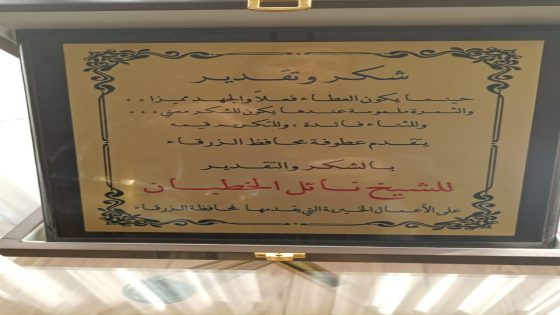 شكر وتقدير
حينما يكون العطاء فعلاً والجهد مميزا . .
والثمرة ملموسة عندها يكون للشكر معنى . . .
وللثناء فائدة ، وللتكريم قيمه
يتقدم عطوفة محافظ الزرقاء
بالشكر والتقدير
للشيخ نائل الخطبان
على الأعمال الخيرية التي يقدمها لمحافظة الزرقاء